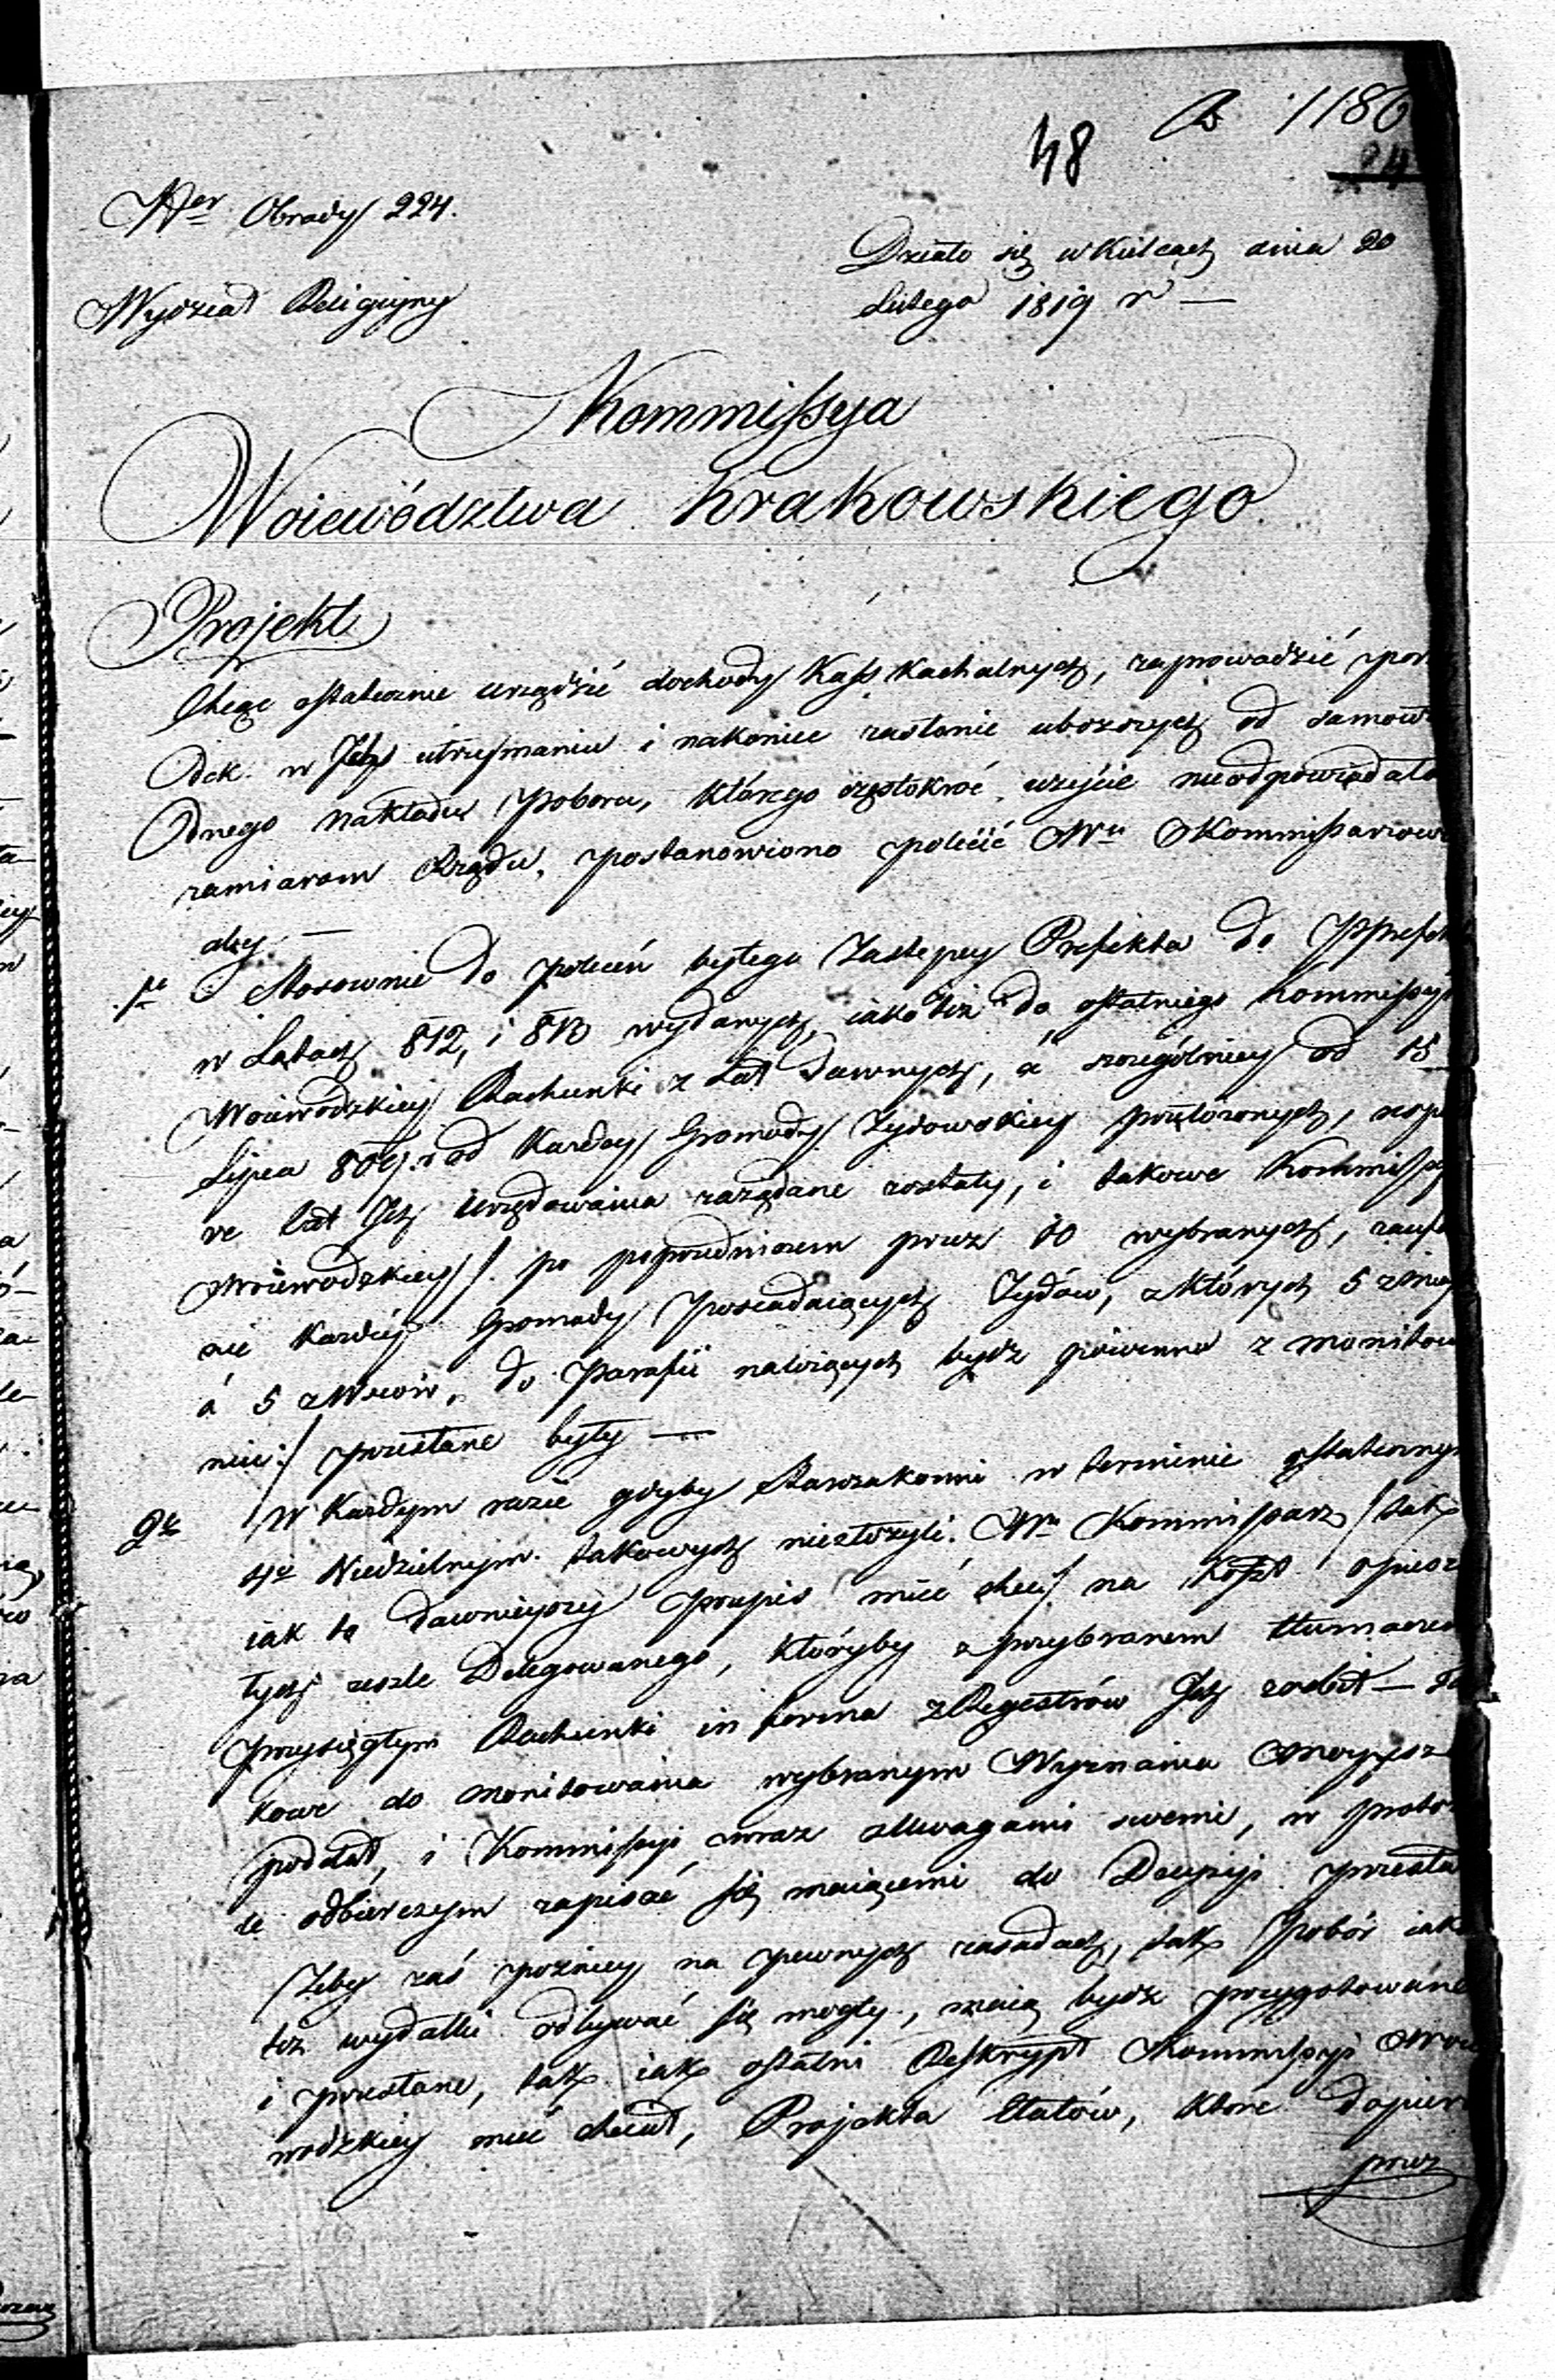 48 1186
24
Ner Obrady 224.
Działo się w Kielcach dnia 20
Wydział Religijny
Lutego 1819 r —
Kommissya
Woiewództwa Krakowskiego
Projekt
Chcąc ostatecznie urządzić dochody Kass Kachalnych, zaprowadzić porz
dek w Ich utrzymaniu i nakoniec zasłonić uboższych od samowo
dnego nakładu poboru, którego częstokroć użycie nieodpowiadało
zamiarom Rządu, postanowiono polecić Wu Kommissarzowi
aby —
1e Stosownie do poleceń byłego Zastępcy Prefekta do Pprefek
w Latach 812, i 813 wydanych, iako też do ostatniego Kommissyi
Woiewódzkiey Rachunki z Lat dawnych, a szczególniey od 15
Lipca 809 r od Każdey Gromady Żydowskiey przełożonych, respe
ve Lat Ich Urzędowania zażądane zostały, i takowe Kommissyi
Woiewodzkiey /: po poprzedniczem przez 10 wybranych, zaufa
nie Każdey Gromady posiadaiących Żydów, z których 5 z Mia
a 5 z Wsiów, do Parafii należących bydź powinno z monitowa
niu :/ przesłane były —
2e W Każdym razie gdyby Starozakonni w terminie ostatecznym
4ro Niedzielnym takowych niezłożyli. Wny Kommissarz / tak
iak to dawnieyszy przepis mieć chciał / na koszt opiesza
łych ześle Delegowanego, któryby z przybranem tłumaczem
przysięgłym Rachunki in forma z Regestrów Ich zrobił — Ta
kowe do monitowania wybranym Wyznania Moyżesz
podał, i Kommissyi wraz z Uwagami swemi, w proto
le odbierczym zapisać się maiącemi do Decyzyi przesłał
Żeby zaś pózniey na pewnych zasadach, tak Pobór iak
też wydatki odbywać się mogły, maią bydź przygotowane
i przesłane, tak iak ostatni Reskrypt Kommissyi Woie
wodzkiey mieć chciał, Projekta Etatów, które dopiero
przez